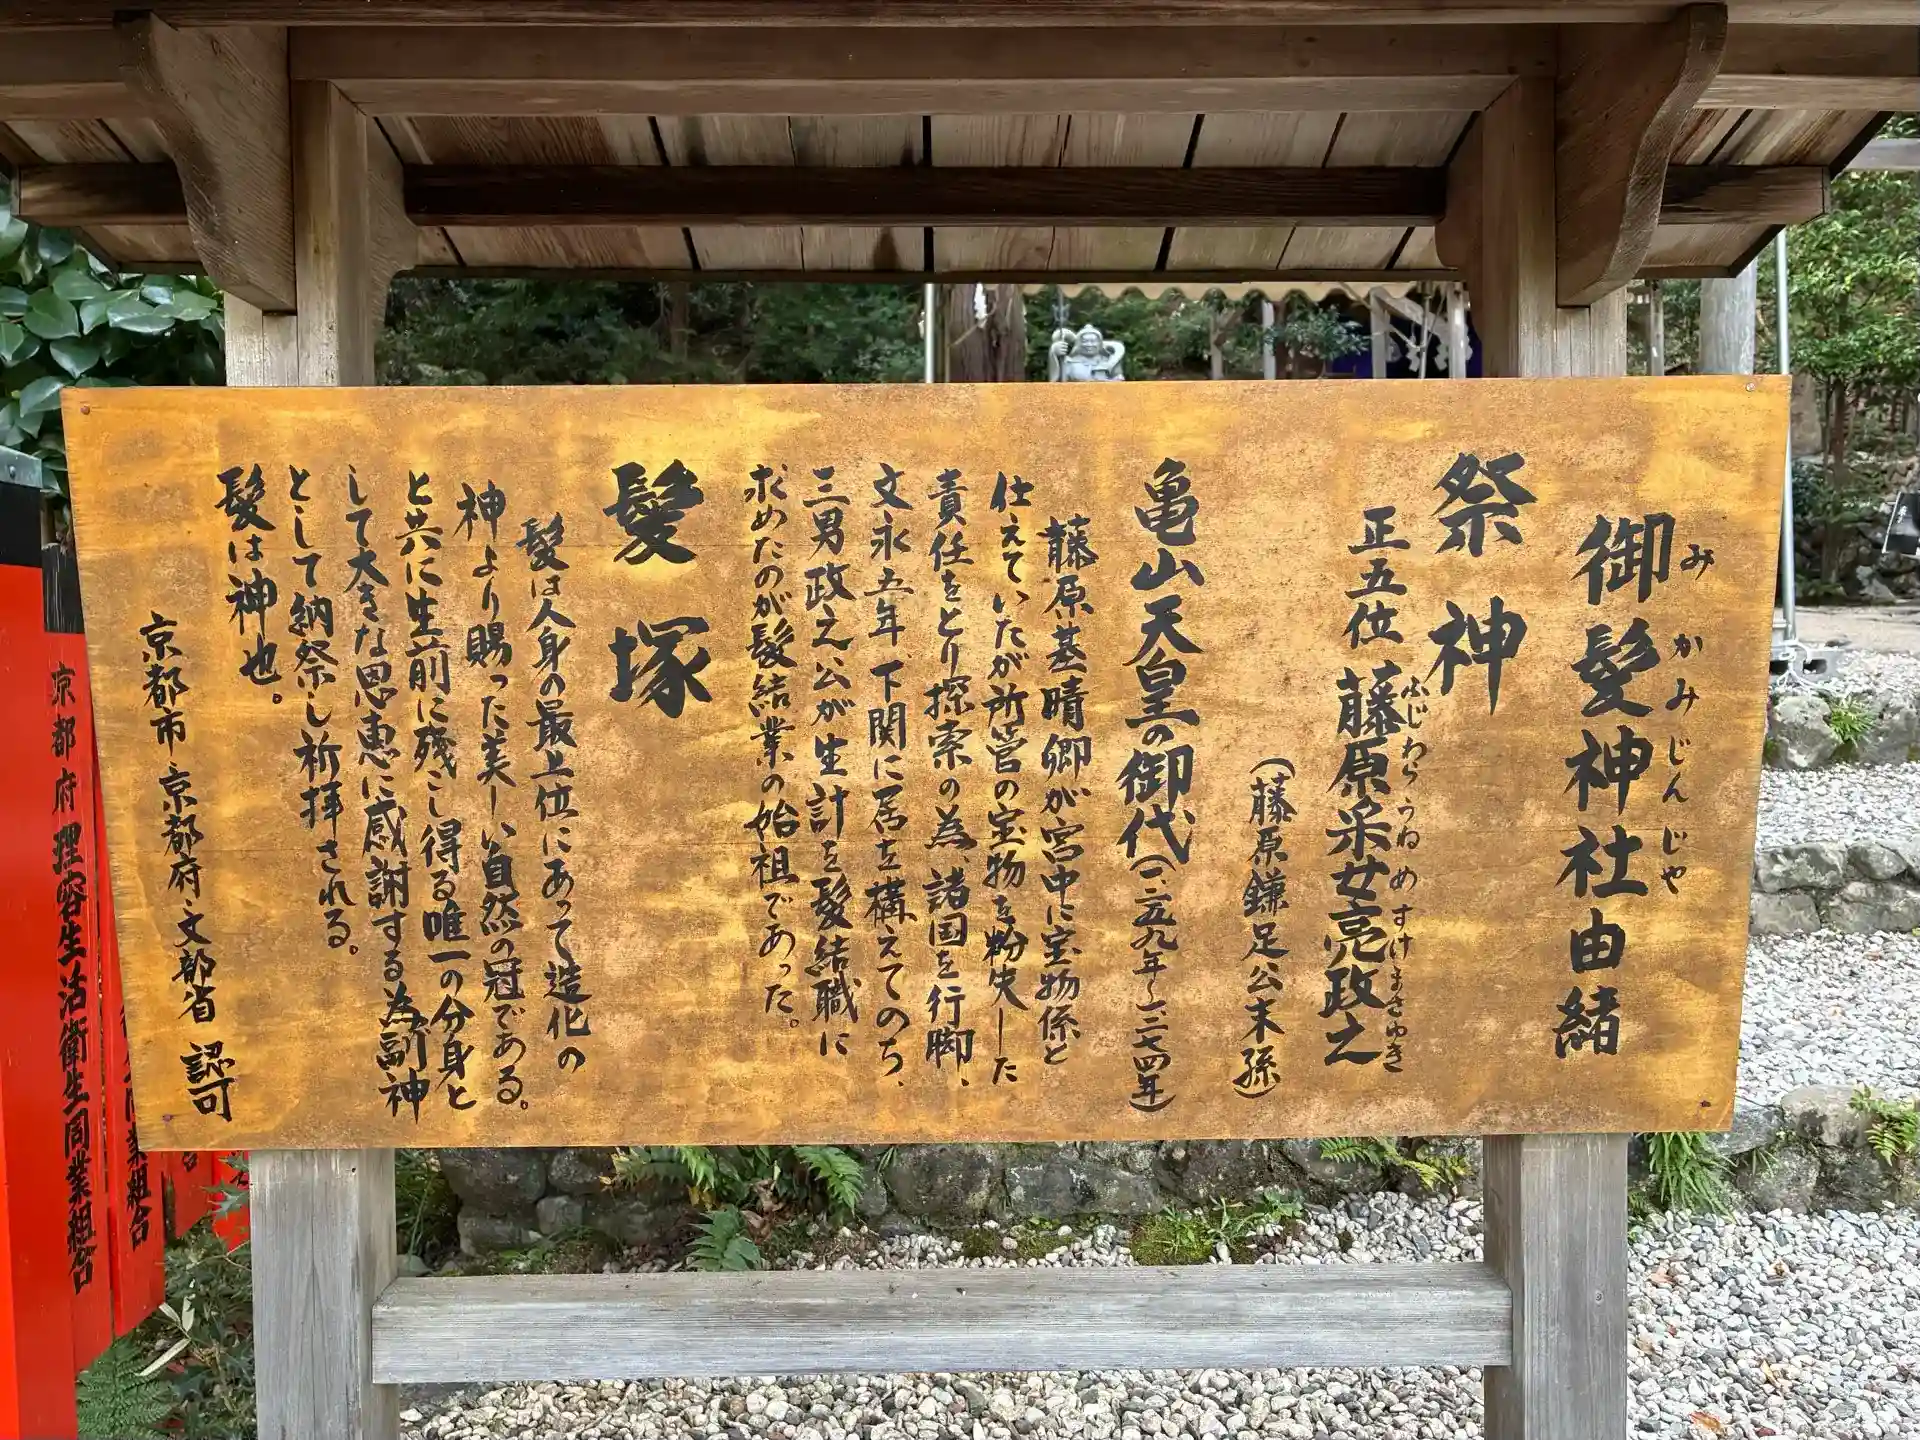 御髪神社由緒
みかみじんじゃ
祭神
正五位 藤原采女亮政之
ふじわらうねめすけまさゆき
(藤原鎌足公末孫)
亀山天皇の御代(一、二五九年〜一、二七四年)
藤原基晴卿が宮中に宝物係と
仕えていたが所管の宝物を紛失した
責任をとり探索の為、諸国を行脚、
文永五年、下関に居を構えてのち、
三男政之公が生計を髪結職に
求めたのが髪結業の始祖であった。
髪塚
髪は人身の最上位にあって造化の
神より賜った美しい自然の冠である。
と共に生前に残こし得る唯一の分身と
して大きな恩恵に感謝する為副神
として納祭し祈拝される。
髪は神也。
京都市・京都府・文部省 認可
京都府理容生活衛生同業組合
同業組合